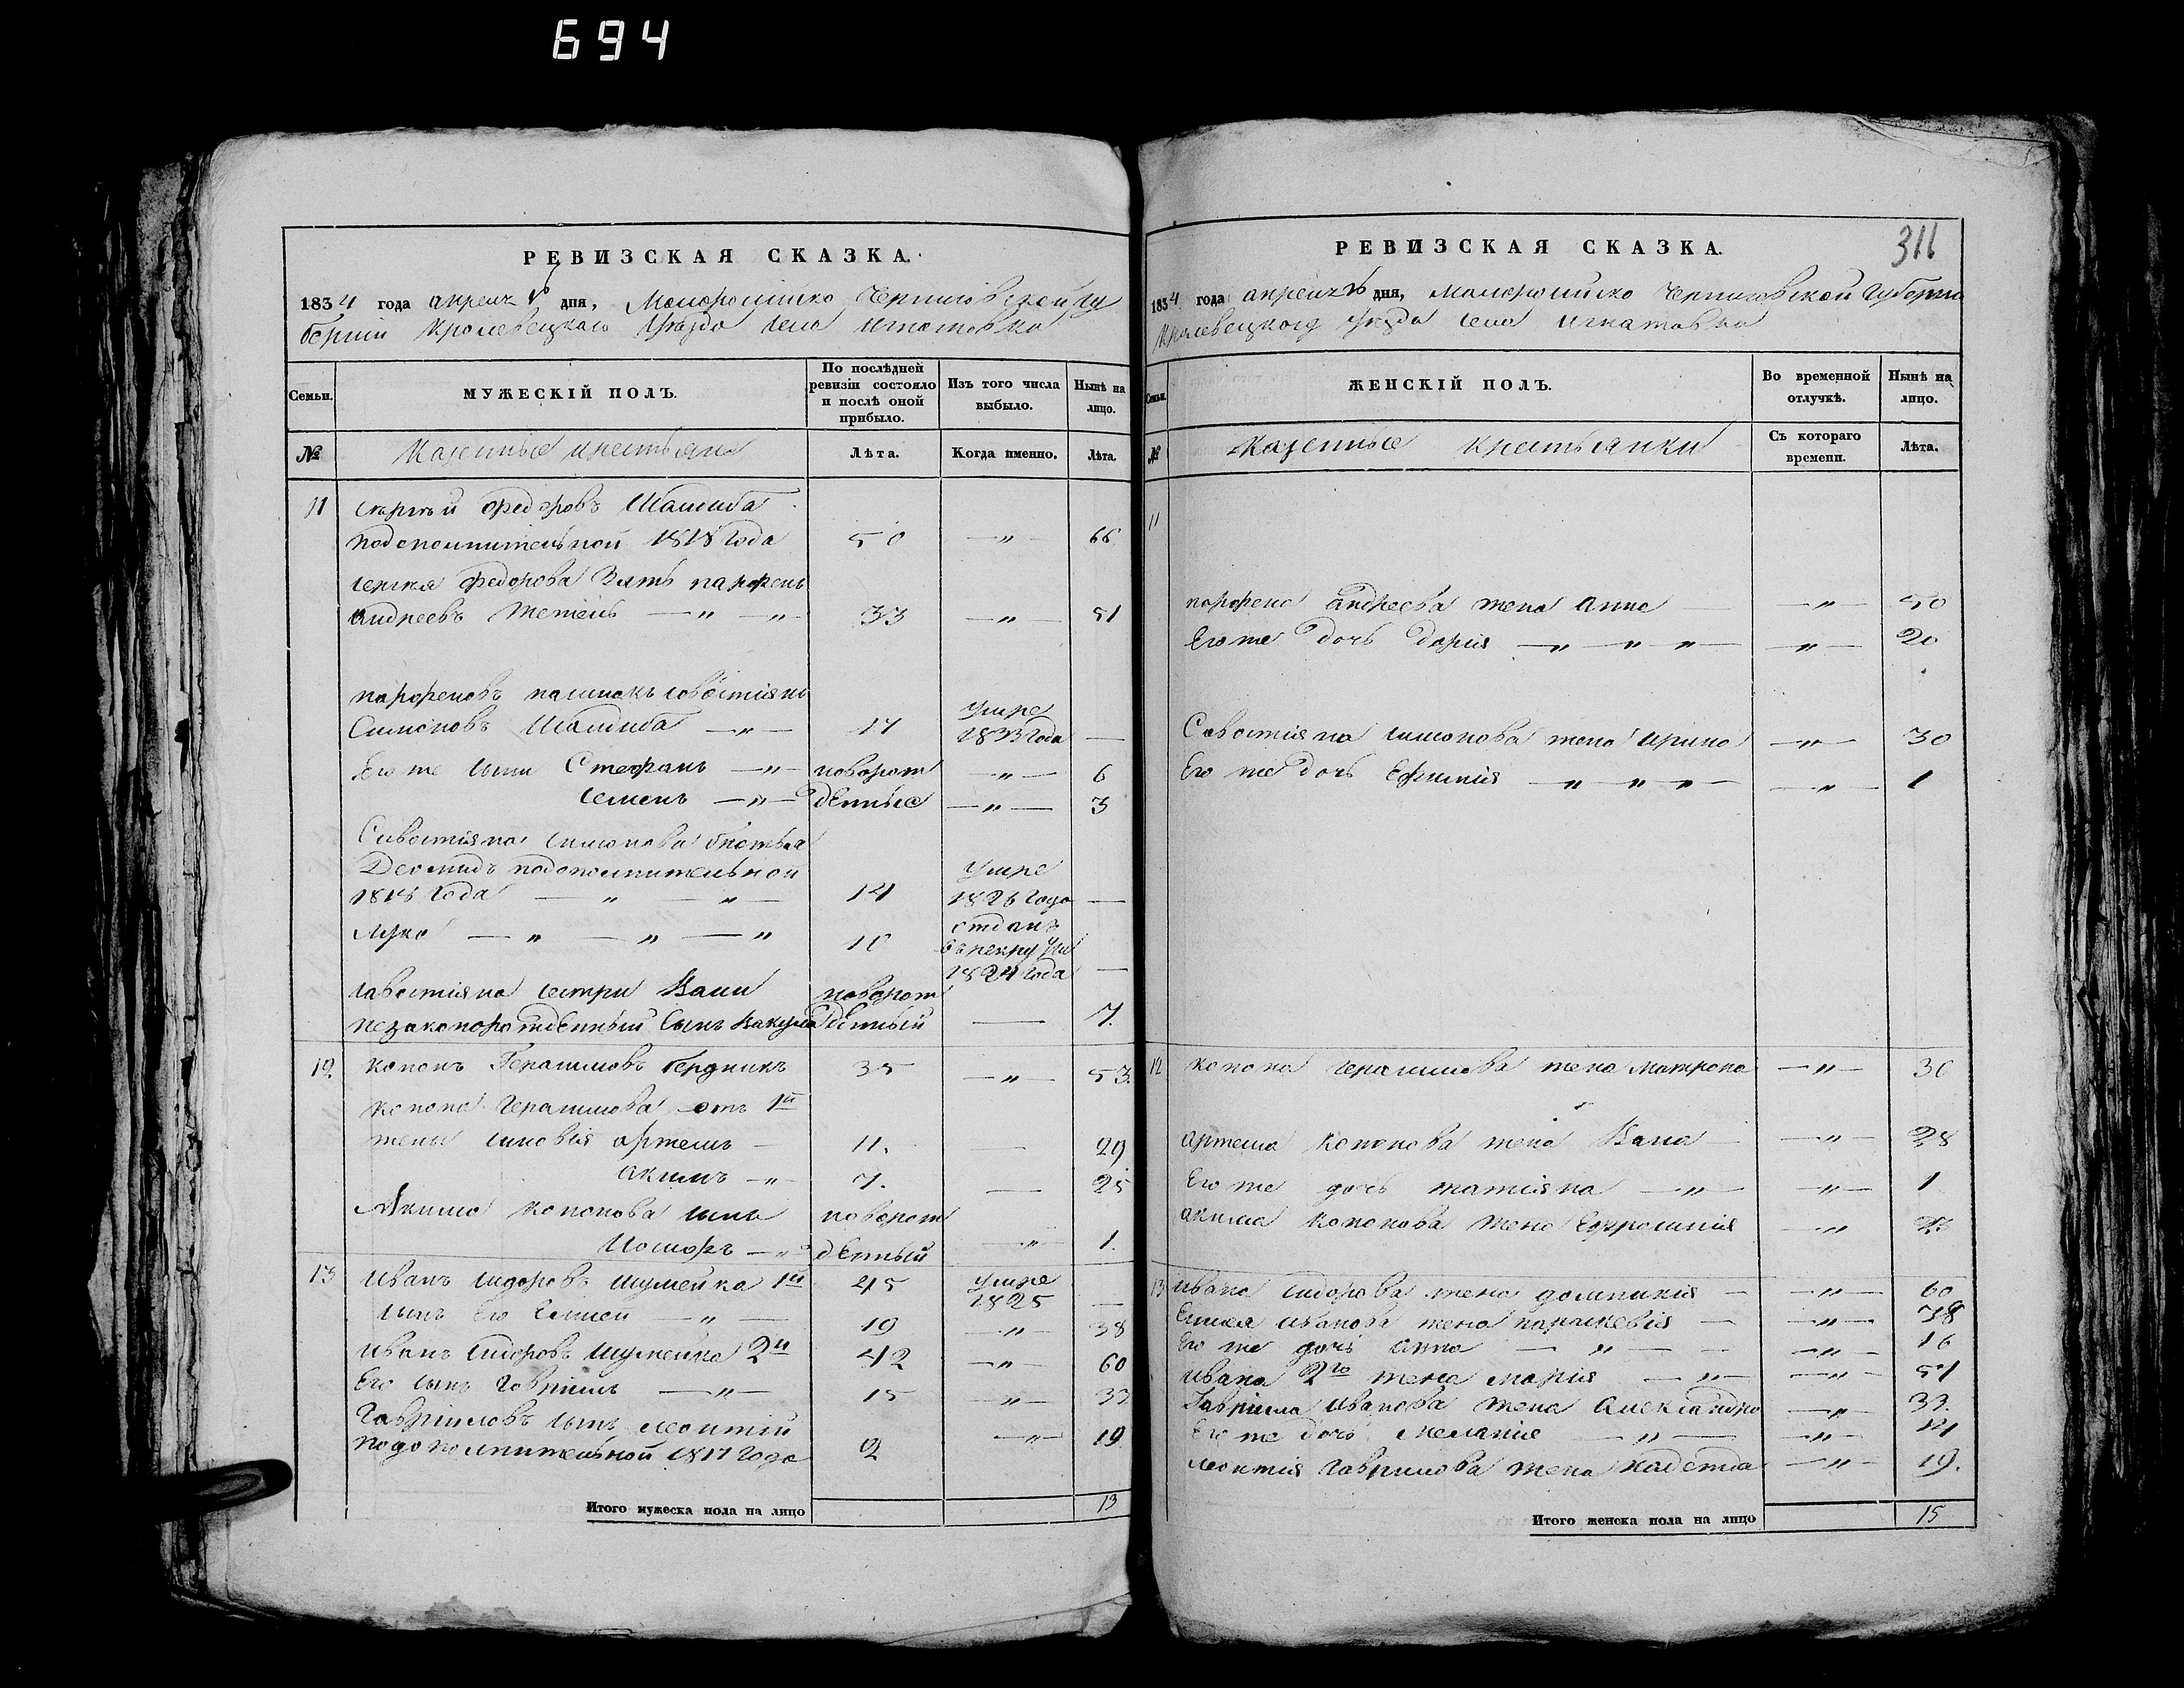 694
РЕВИЗСКАЯ СКАЗКА.
1834 года апреля дня, Малоросийско Черниговской гу
бернии Кролевецкаго уезда села Игнатовка
Семьи.
МУЖЕСКІЙ ПОЛЪ.
По послѣдней ревизіи состояло и послѣ оной прибыло.
Изъ того числа выбыло.
Нынѣ на лицо.
№
Казенные крестьяне
Лѣта.
Когда именно.
Лѣта.
11 Сергѣй Федоровъ
подополнительной 1818 года 50 — " — 66
Сергея Федорова Зять парфенъ
андреевъ — " — " — 33 — " — 51
парфеновъ пасинокъ Савостіянъ
Симоновъ — " — 17 умре 1833 года —
Его же сыни Стефанъ — " — новорож — " — 6
Семенъ — " — денные — " — 3
Савостіяна Симонова братья
Деомидъ подополнительной
1818 года — " — " — 14 умре 1826 года —
Лука — " — " — " 10 отданъ в рекруты 1824 года —
Савостіяна сестри новорож
незаконорожденный сынъ Вакула денный — 7.
12. Кононъ Герасимовъ Бердникъ 35 — " — 53.
Конона Герасимова отъ 1й
жены синовія артемъ — 11. — 29
акимъ — " — 7. — 25
Якима Кононова сынъ новорож
— " — денный — " — 1.
13 Иванъ Сидоровъ Шумейка 1й 45 умре 1825 —
сынъ его Елисей — " — 19 — " — 38
Иванъ Сидоровъ Шумейка 2й 42 — " — 60
Его сынъ Гавріилъ — " — 15 — " — 33
Гавріиловъ сынъ леонтій
подополнительной 1817 года 2 — " — 19
Итого мужеска пола на лицо 13
311
РЕВИЗСКАЯ СКАЗКА.
1834 года апреля дня, Малоросийско Черниговской Губерни
Кролевецкого уезда села Игнатовка
Семьи.
ЖЕНСКІЙ ПОЛЪ.
Во временной отлучкѣ.
Нынѣ на лицо.
№
Казенные крестьянки
Съ котораго времени.
Лѣта.
11
парфена андреева жена анна — " — 50
Его же дочь дарія — " — " — " — " — 20
Савостіяна Симонова жена ирина — " — 30
Его же дочь Ефимія — " — " — " — " — 1
12 Конона Герасимова жена Матрона — " — 30
артема Кононова жена — " — 28
Его же дочь татіяна — " — " — 1
акима Кононова жена Ефросинія — " 23
13 Ивана Сидорова жена домникія — — " — 60
Елисея Иванова жена параскевія — — " — 38
Его же дочь анна — " — — " — 16
Ивана 2го жена марія — " — — " — 57
Гавріила Иванова жена александра — " — 33.
Его же дочь Меланіе — " — — " — 14
леонтія Гаврилова жена надежда — " — 19.
Итого женска пола на лицо 15